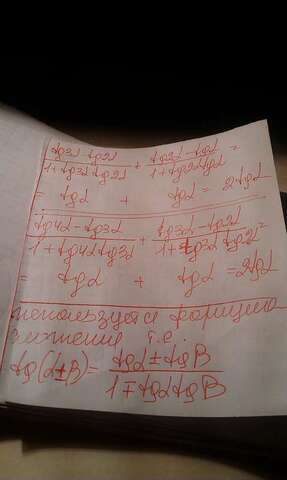 tg3α tg2α / 1+tg3α tg2α + tg2α-tgα / 1+tg2α tgα =
= tgα + tgα = 2tgα
tg4α - tg3α / 1+tg4α tg3α + tg3α - tg2α / 1+tg3α tg2α =
= tgα + tgα = 2tgα
используется формула
т.е.
tg(α±β) = tgα ± tgβ / 1∓tgα tgβ